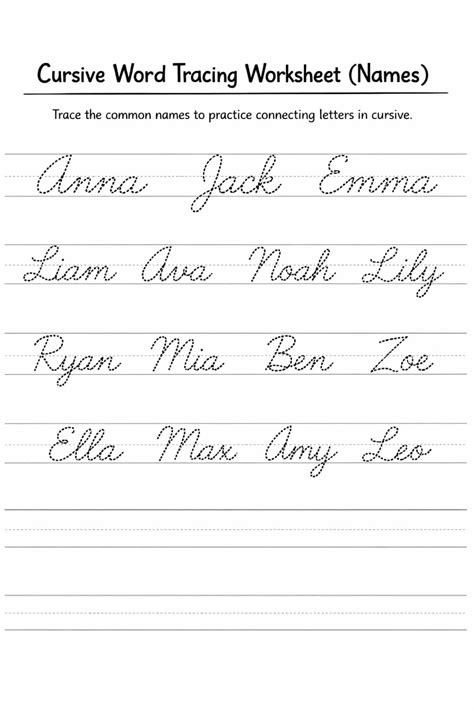 Cursive Word Tracing Worksheet (Names)
Trace the common names to practice connecting letters in cursive.
Anna Jack Emma
Liam Ava Noah Lily
Ryan Mia Ben Zoe
Ella Max Amy Leo